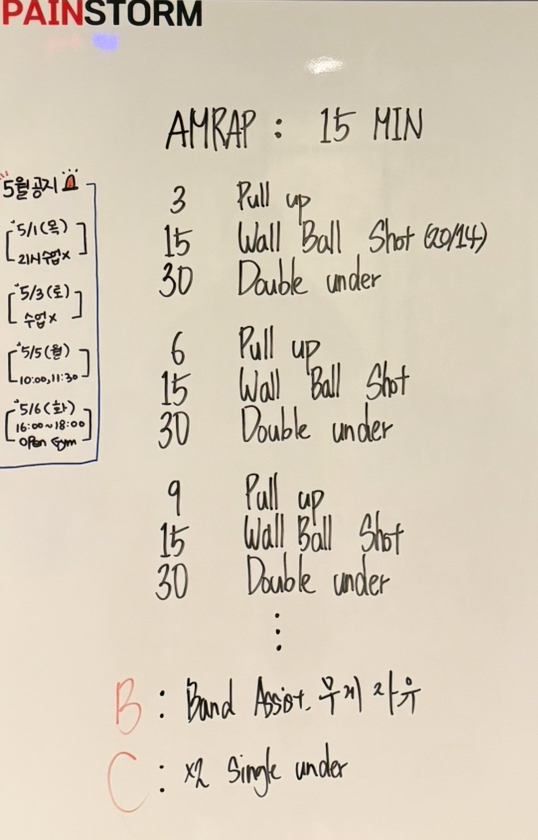 PAINSTORM
AMRAP : 15 MIN
3 Pull up
15 Wall Ball Shot (20/14)
30 Double under
6 Pull up
15 Wall Ball Shot
30 Double under
9 Pull up
15 Wall Ball Shot
30 Double under
⋮
B : Band Assist. 무게 자유
C : x2 Single under
5월 공지
*5/1(목)
21시 수업x
*5/3(토)
수업x
*5/5(월)
10:00, 11:30
*5/6(화)
16:00~18:00
open Gym